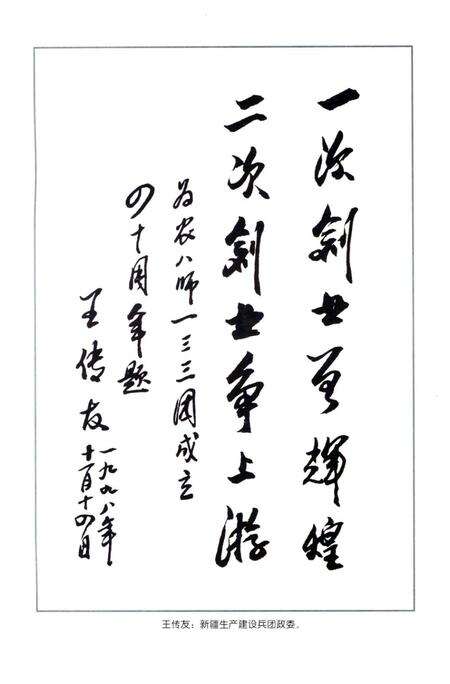 一次創业輝煌
二次創业争上游
为农八师一三三团成立
四十周年题
王传友
一九九八年
十一月十四日
王传友：新疆生产建设兵团政委。